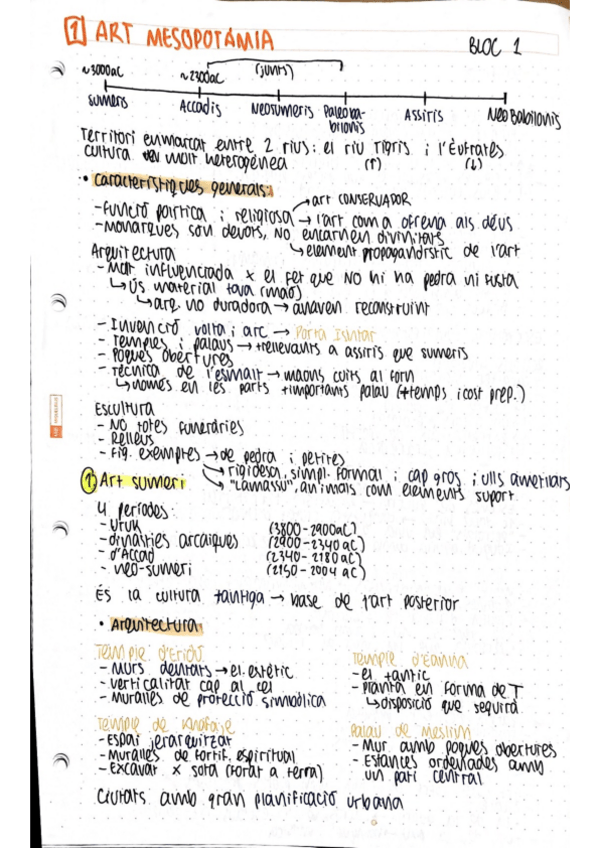 1 ART MESOPOTÁMIA
BLOC 1
~3000aC ~2300aC (junts)
sumeris Accadis Neosumeris Paleobabilonis Assiris Neobabilonis
Territori enmarcat entre 2 rius: el riu Tigris i l'Èufrates
cultura molt heterogénea (↑) (↓)
• Característiques generals:
→ art CONSERVADOR
- Funció política i religiosa → l'art com a ofrena als déus
- Monarques són devots, NO encarnen divinitats
↳ element propagandístic de l'art
Arquitectura
- Molt influenciada x el fet que NO hi ha pedra ni fusta
↳ ús material tova (maó)
↳ arq. no duradora → anaven reconstruint
- Invenció volta i arc → Porta Ishtar
- Temples i palaus → +rellevants a assiris que sumeris
- Poques obertures
- Tècnica de l'esmalt → maons cuits al forn
↳ només en les parts +importants palau (+temps i cost prep.)
Escultura
- NO totes funeràries
- Relleus
- Fig. exemptes → de pedra i petites
→ rigidesa, simpl. formal i cap gros i ulls ametllats
1. Art sumeri
→ "Lamassu", animals com elements suport
4 períodes:
- Uruk (3800-2900aC)
- dinasties arcaiques (2900-2340 aC)
- d'Accad (2340-2180 aC)
- neo-sumeri (2150-2004 aC)
És la cultura +antiga → base de l'art posterior
• Arquitectura
Temple d'Eridú
- Murs dentats → el. estètic
- verticalitat cap al cel
- Muralles de protecció simbòlica
Temple d'Eanna
- el +antic
- planta en forma de T
↳ disposició que seguirà
Temple de Khafaje
- Espai jerarquitzat
- Muralles de fortif. espiritual
- Excavar x sota (forat a terra)
Palau de Meslim
- Mur amb poques obertures
- Estances ordenades amb
un pati central
Ciutats amb gran planificació urbana